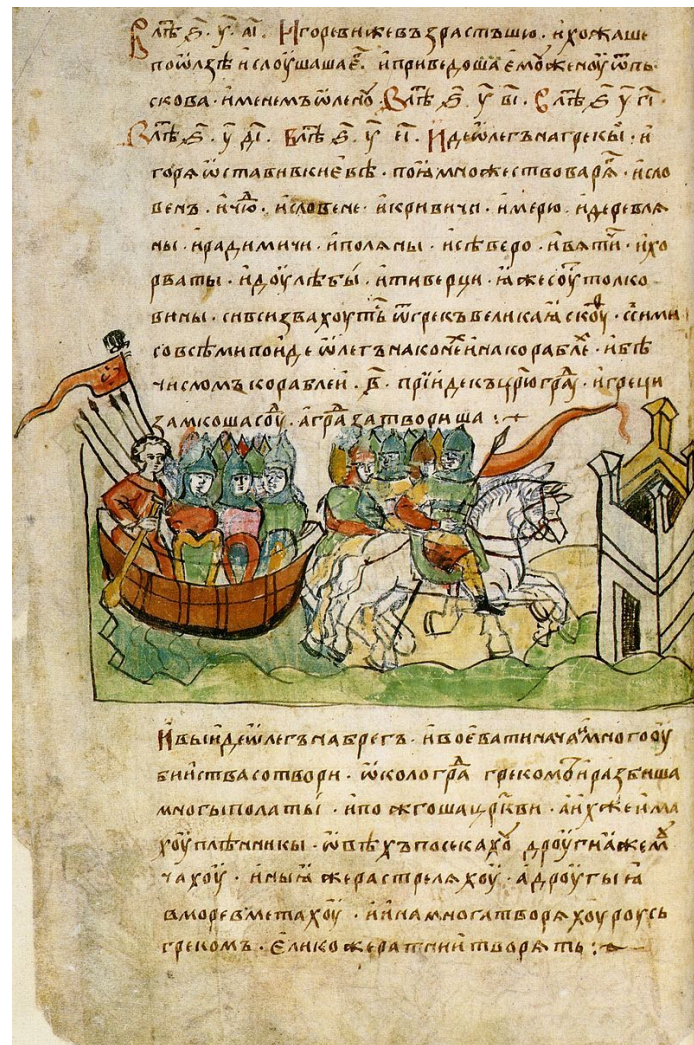 В лѣⷮ ҂ѕ҃. у҃. а҃і. Игоревижевъзрастъшю. ихожаше
поѡлзѣ ислоушашаеⷢ. иприведоша емоу женоу ѿпь
скова. именемъ ѡленоу. В лѣⷮ ҂ѕ҃ у҃ в҃і. В лѣⷮ ҂ѕ҃ у҃ г҃і.
В лѣⷮ ҂ѕ҃. у҃ д҃і. В лѣⷮ ҂ѕ҃. у҃ е҃і. Иде ѡлегъ нагрекы. и
горя ѡставивъ киевѣ. поꙗ множество варяⷢ. исло
венъ. ичюⷣ. исловене. икривичи. имерю. идеревля
ны. ирадимичи. иполяны. исѣверо. ивятиⷱ. ихо
рваты. идоулѣбы. итиверци. ꙗжесоуⷮ толко
вины. сивси звахоутьⷭ ѿгрекъ великаꙗ скоуⷴ. ссими
совсѣми поиде ѡлегъ наконеⷯ инакораблеⷯ. ибѣ
числомъ кораблеи. ҂в҃. прїиде къцр҃юграⷣ. игреци
замкоша соуⷣ. аграⷣ затвориша :
Ивыиде ѡлегъ набрегъ. ивоевати начаⷮ. многооу
биства сотвори. ѡколо граⷣ грекомъ. иразбиша
многы полаты. ипожгоша цр҃кви. аихже има
хоу плѣнникы. ѡвѣхъ посекахоу дроугиꙗже мⷱ
чахоу. иныꙗ же растреляхоу. адроугыꙗ
вморе вметахоу. иина многа творяхоу роусь
грекомъ. елико же ратнии творять :